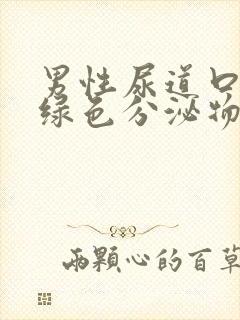 男性尿道口
绿色分泌物
两颗心的百草